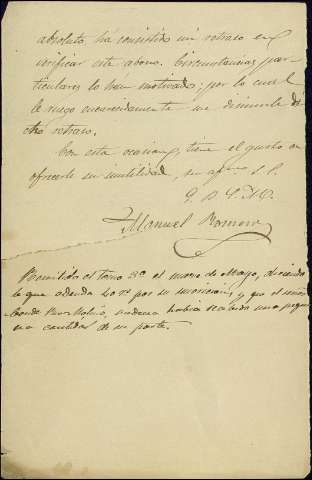 absoluto, ha consistido mi retraso en
verificar este abono. Circunstancias par-
ticulares lo han motivado; por lo cual
le ruego encarecidamente me disimule di
cho retraso.
Con esta ocasion, tiene el gusto en
ofrecerle su inutilidad, su afmo S. S.
Q. B. S. M.
Manuel Romero
Remitido el tomo 3º el mismo de Mayo, diciendo
le que adeuda 40 rs por su suscricion, y que el señor
Conde habia recibido una peque
na cantidad de su parte.